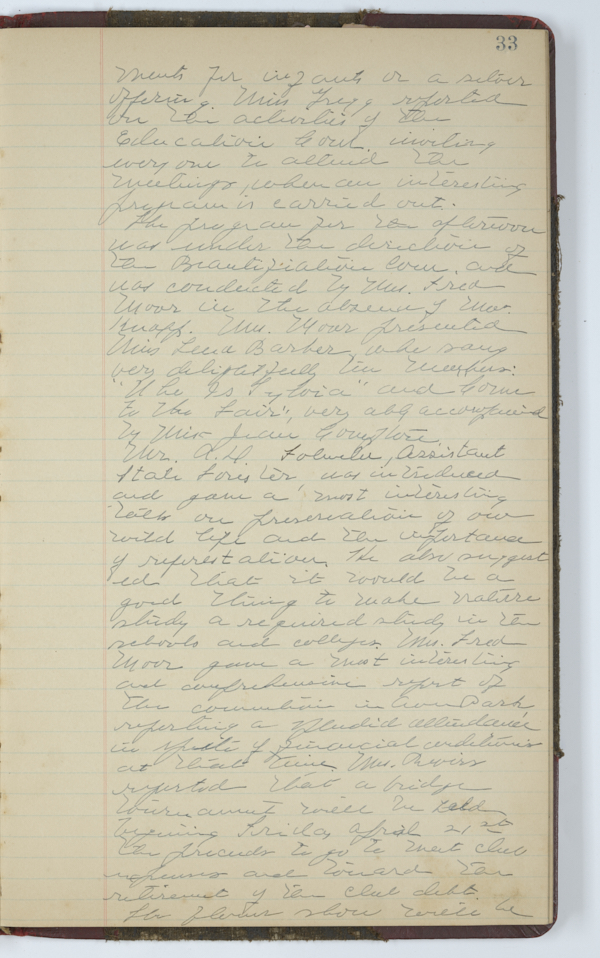 33
ments for infants or a silver
offering. Miss Gregg reported
on the activities of the
Education Com. inviting
every one to attend the
meetings, when an interesting
program is carried out.
The program for the afternoon
was under the direction of
the Beautification Com. and
was conducted by Mrs. Fred
Moor in the absence of Mrs.
Knapp. Mrs. Moor presented
Miss Lena Barber, who sang
very delightfully two numbers:
"Who Is Sylvia" and Come
to the Fair", very ably accompanied
by Miss Jean
Mr. A.D. Folweiler, Assistant
State Forister, was introduced
and gave a most interesting
talk on preservation of our
wild life and the importance
of reforestation. He also suggest
ed that it would be a
good thing to make nature
study a required study in the
schools and colleges. Mrs. Fred
Moor gave a most interesting
and comprehensive report of
the convention in Avon Park
reporting a splendid attendance
in spite of financial conditions
at that time. Mrs.
reported that a bridge
tournament will be held
begining Friday April 21st
the proceeds to go to meet club
expenses and toward the
retirement of the club debt.
The flower show will be